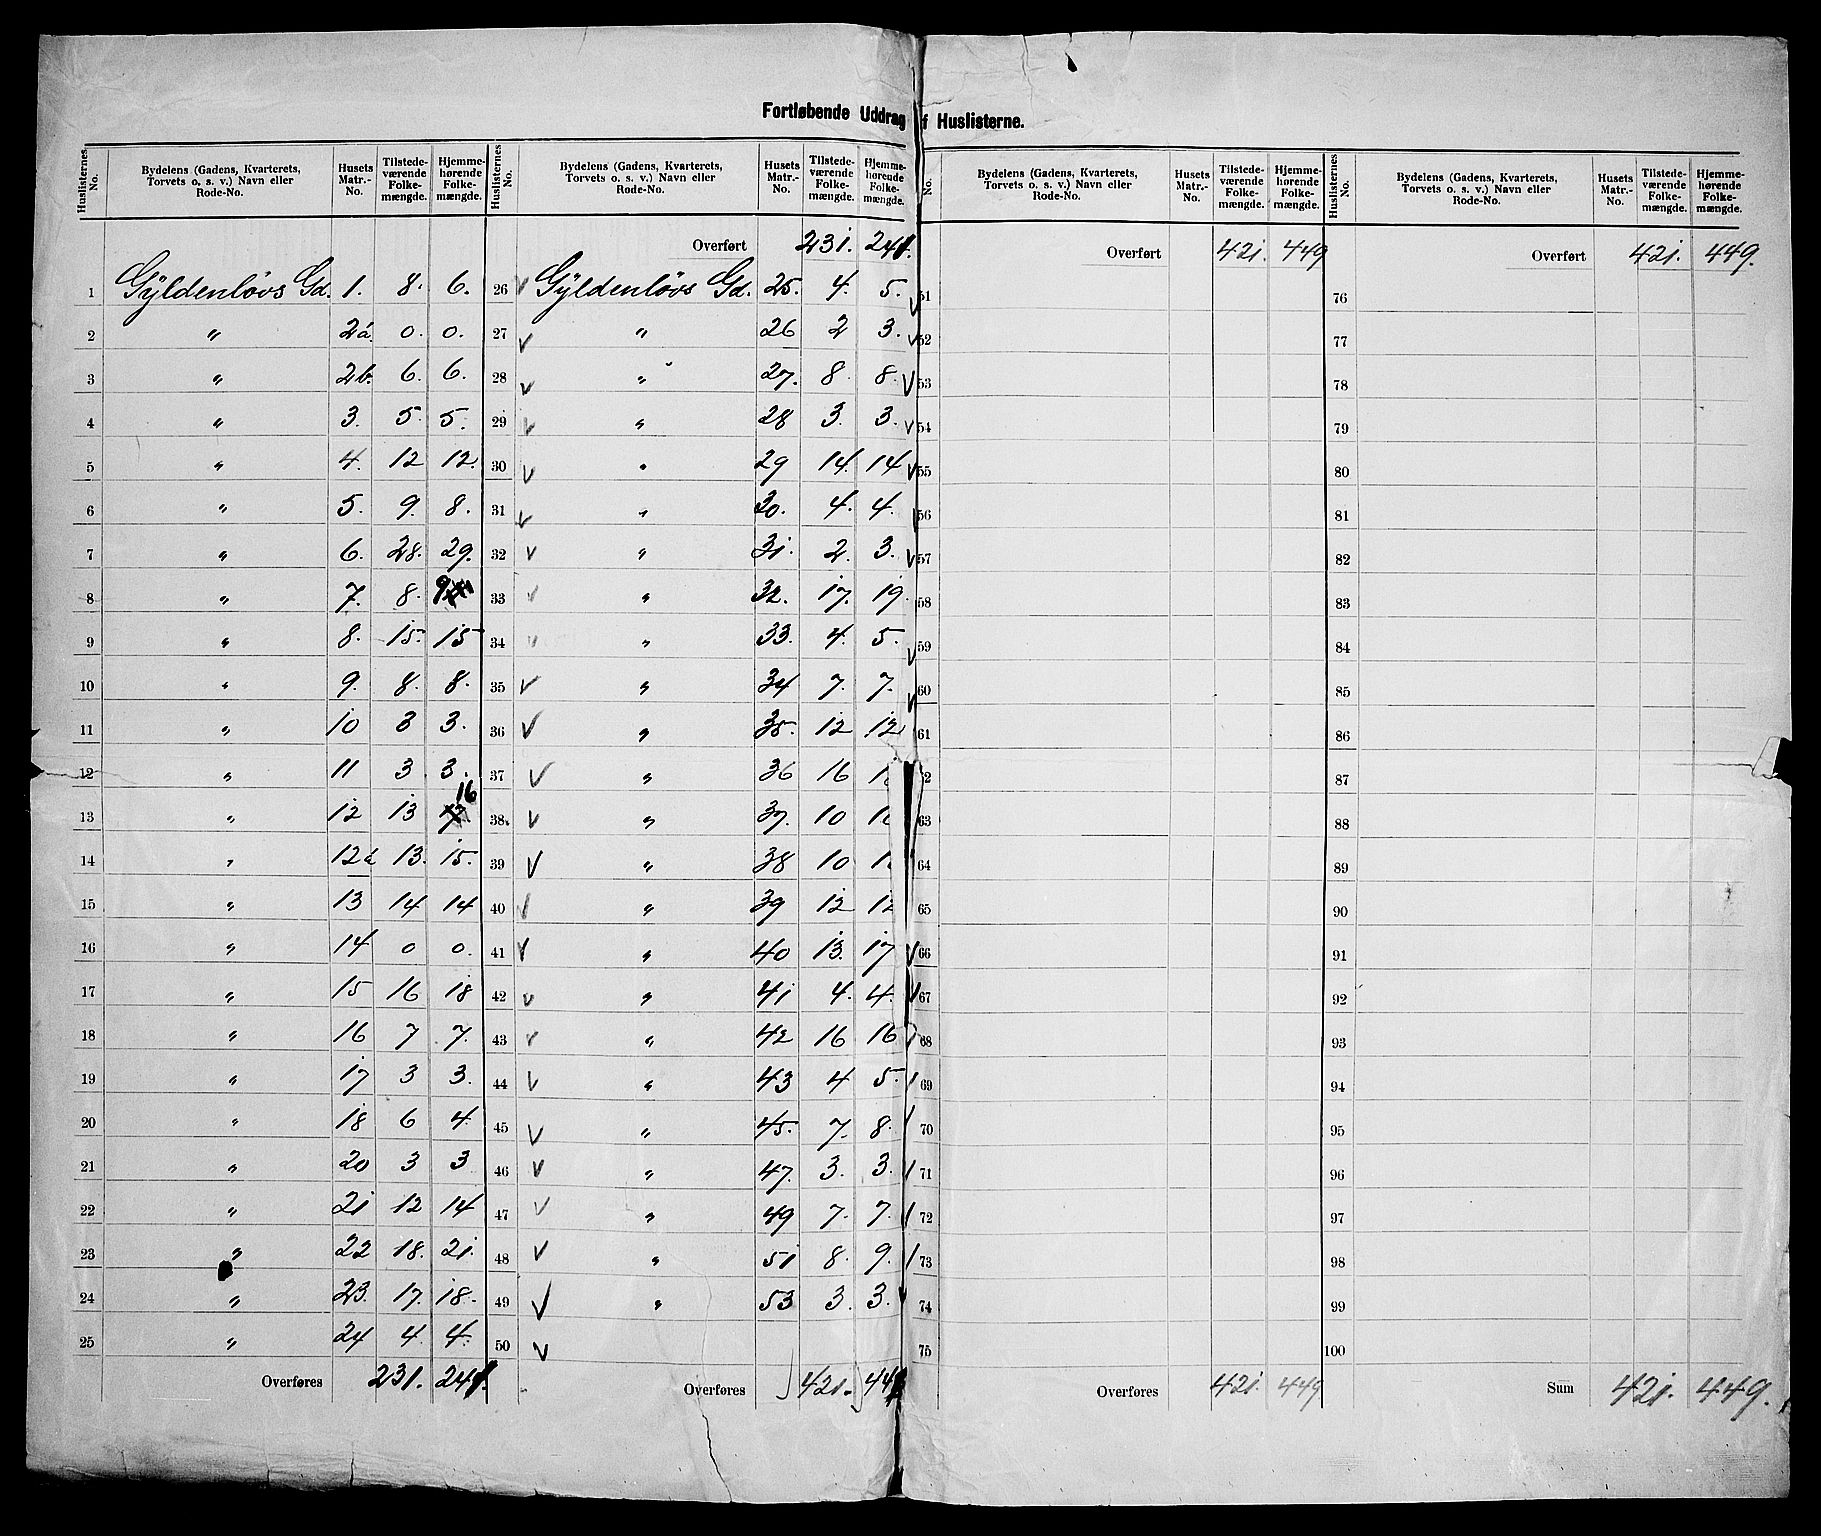 Fortløbende Uddrag f Huslisterne.
Huslisternes No. | Bydelens (Gadens, Kvarterets, Torvets o. s. v.) Navn eller Rode-No. | Husets Matr.-No. | Tilstede-værende Folke-mængde. | Hjemme-hørende Folke-mængde.
1 Gyldenløvs Gd. 1. 8. 6.
2 " 2a. 0. 0.
3 " 2b. 6. 6.
4 " 3. 5. 5.
5 " 4. 12 12.
6 " 5. 9. 8.
7 " 6. 28. 29.
8 " 7. 8. 9
9 " 8. 15. 15
10 " 9. 8. 8.
11 " 10 3 3.
12 " 11 3 3.
13 " 12 13 16
14 " 12a 13. 15.
15 " 13 14 14
16 " 14 0 0.
17 " 15 16 18
18 " 16 7 7.
19 " 17 3 3.
20 " 18 6 4.
21 " 20 3 3
22 " 21 12 14
23 " 22 18. 21.
24 " 23. 17. 18.
25 " 24 4. 4.
Overføres 231. 241.
Huslisternes No. | Bydelens (Gadens, Kvarterets, Torvets o. s. v.) Navn eller Rode-No. | Husets Matr.-No. | Tilstede-værende Folke-mængde. | Hjemme-hørende Folke-mængde.
Overført 231. 241.
26 V Gyldenløvs Gd. 25. 4. 5.
27 V " 26 2 3.
28 V " 27. 8. 8.
29 V " 28 3. 3.
30 V " 29 14. 14
31 V " 30. 4. 4.
32 V " 31. 2. 3.
33 V " 32. 17. 19.
34 V " 33. 4. 5.
35 V " 34 7. 7.
36 V " 35. 12 12
37 V " 36 16
38 V " 37. 10
39 V " 38 10
40 V " 39 12 12
41 V " 40 13. 17
42 V " 41 4. 4.
43 V " 42 16 16
44 V " 43 4 5.
45 V " 45. 7. 8.
46 V " 47. 3. 3.
47 V " 49 7. 7.
48 V " 51 8. 9.
49 V " 53 3. 3.
50 V
Overføres 421. 44
No. | Bydelens (Gadens, Kvarterets, Torvets o. s. v.) Navn eller Rode-No. | Husets Matr.-No. | Tilstede-værende Folke-mængde. | Hjemme-hørende Folke-mængde.
Overført 421. 449
51
52
53
54
55
56
57
58
59
60
61
62
63
64
65
66
67
68
69
70
71
72
73
74
75
Overføres 421. 449
Huslisternes No. | Bydelens (Gadens, Kvarterets, Torvets o. s. v.) Navn eller Rode-No. | Husets Matr.-No. | Tilstede-værende Folke-mængde. | Hjemme-hørende Folke-mængde.
Overført 421. 449.
76
77
78
79
80
81
82
83
84
85
86
87
88
89
90
91
92
93
94
95
96
97
98
99
100
Sum 421. 449.